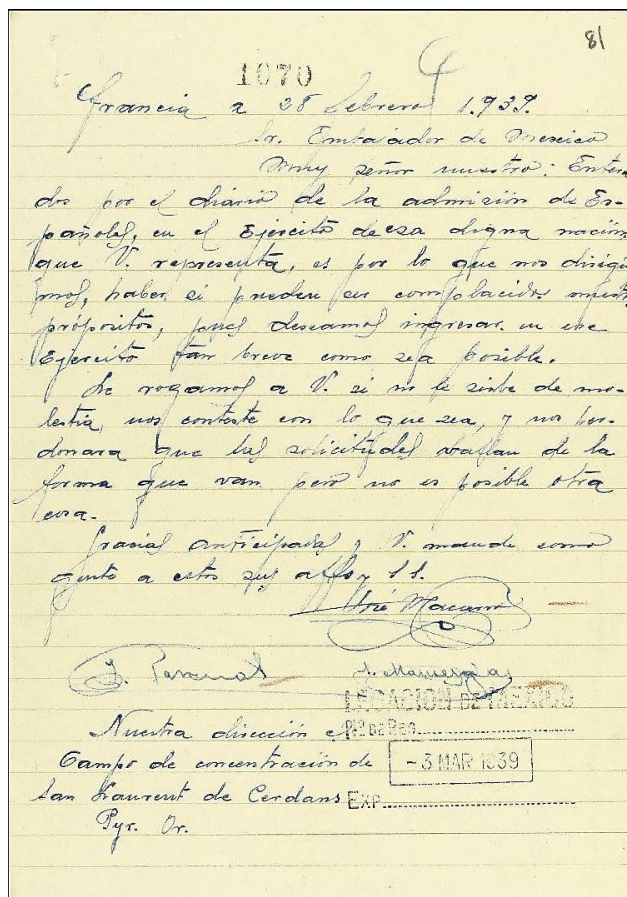 81
1070
Francia a 28 Febrero 1.939.
Sr. Embajador de Mexico
Muy señor nuestro: Entera
dos por el diário de la admisión de Es-
pañoles, en el Ejército de esa digna nación
que V. representa, es por lo que nos dirigi
mos, haber si pueden ser complacidos nuestr
própositos, pues deseamos ingresar en ese
Ejercito tan breve como sea posible.
Le rogamos a V. si no le sirbe de mo-
lestia, nos conteste con lo que sea, y nos per-
donara que las solicitudes vallan de la
forma que van pero no es posible otra
cosa.
Gracias anticipadas y V. mande como
guste a estos sus affs y s.s.
José
J. Pascual
LEGACION DE MEXICO
Nuestra dirección es
Nº DE REG.
Campo de concentración de
- 3 MAR 1939
San Laurent de Cerdans
EXP.
Pyr. Or.